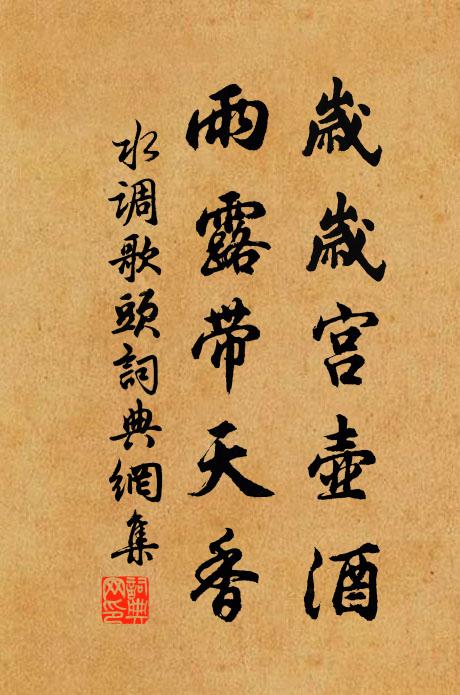 歲歲宫壺酒
雨露带天香
水调歌頭詞典網集
詞典
网印